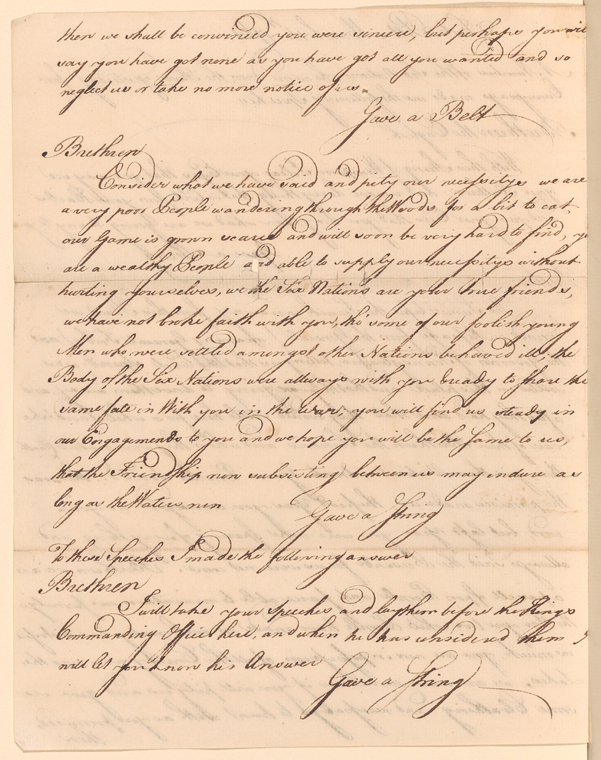 then we shall be convinced you were sincere, but perhaps you will
say you have got none as you have got all you wanted and so
neglect us or take no more notice of us.
Gave a Belt
Brethren
Consider what we have said and pity our necessitys we are
a very poor People wandering through the Woods for a bit to eat,
our Game is grown scarce and will soon be very hard to find, yo
are a wealthy People and able to supply our necessitys without
hurting yourselves, we the Six Nations are your true friends,
we have not broke faith with you, tho' some of our foolish young
Men who were settled amongst other Nations behaved ill, the
Body of the Six Nations were allways with you & ready to share the
same fate in With you in the War, you will find us steady in
our Engagements to you and we hope you will be the same to us,
that the Friendship now subsisting between us may endure as
long as the Waters run
Gave a String
To these Speeches I made the following answer
Brethren
I will take your speeches and lay them before the Kings
Commanding Officer here, and when he has considered them
will let you know his Answer
Gave a String